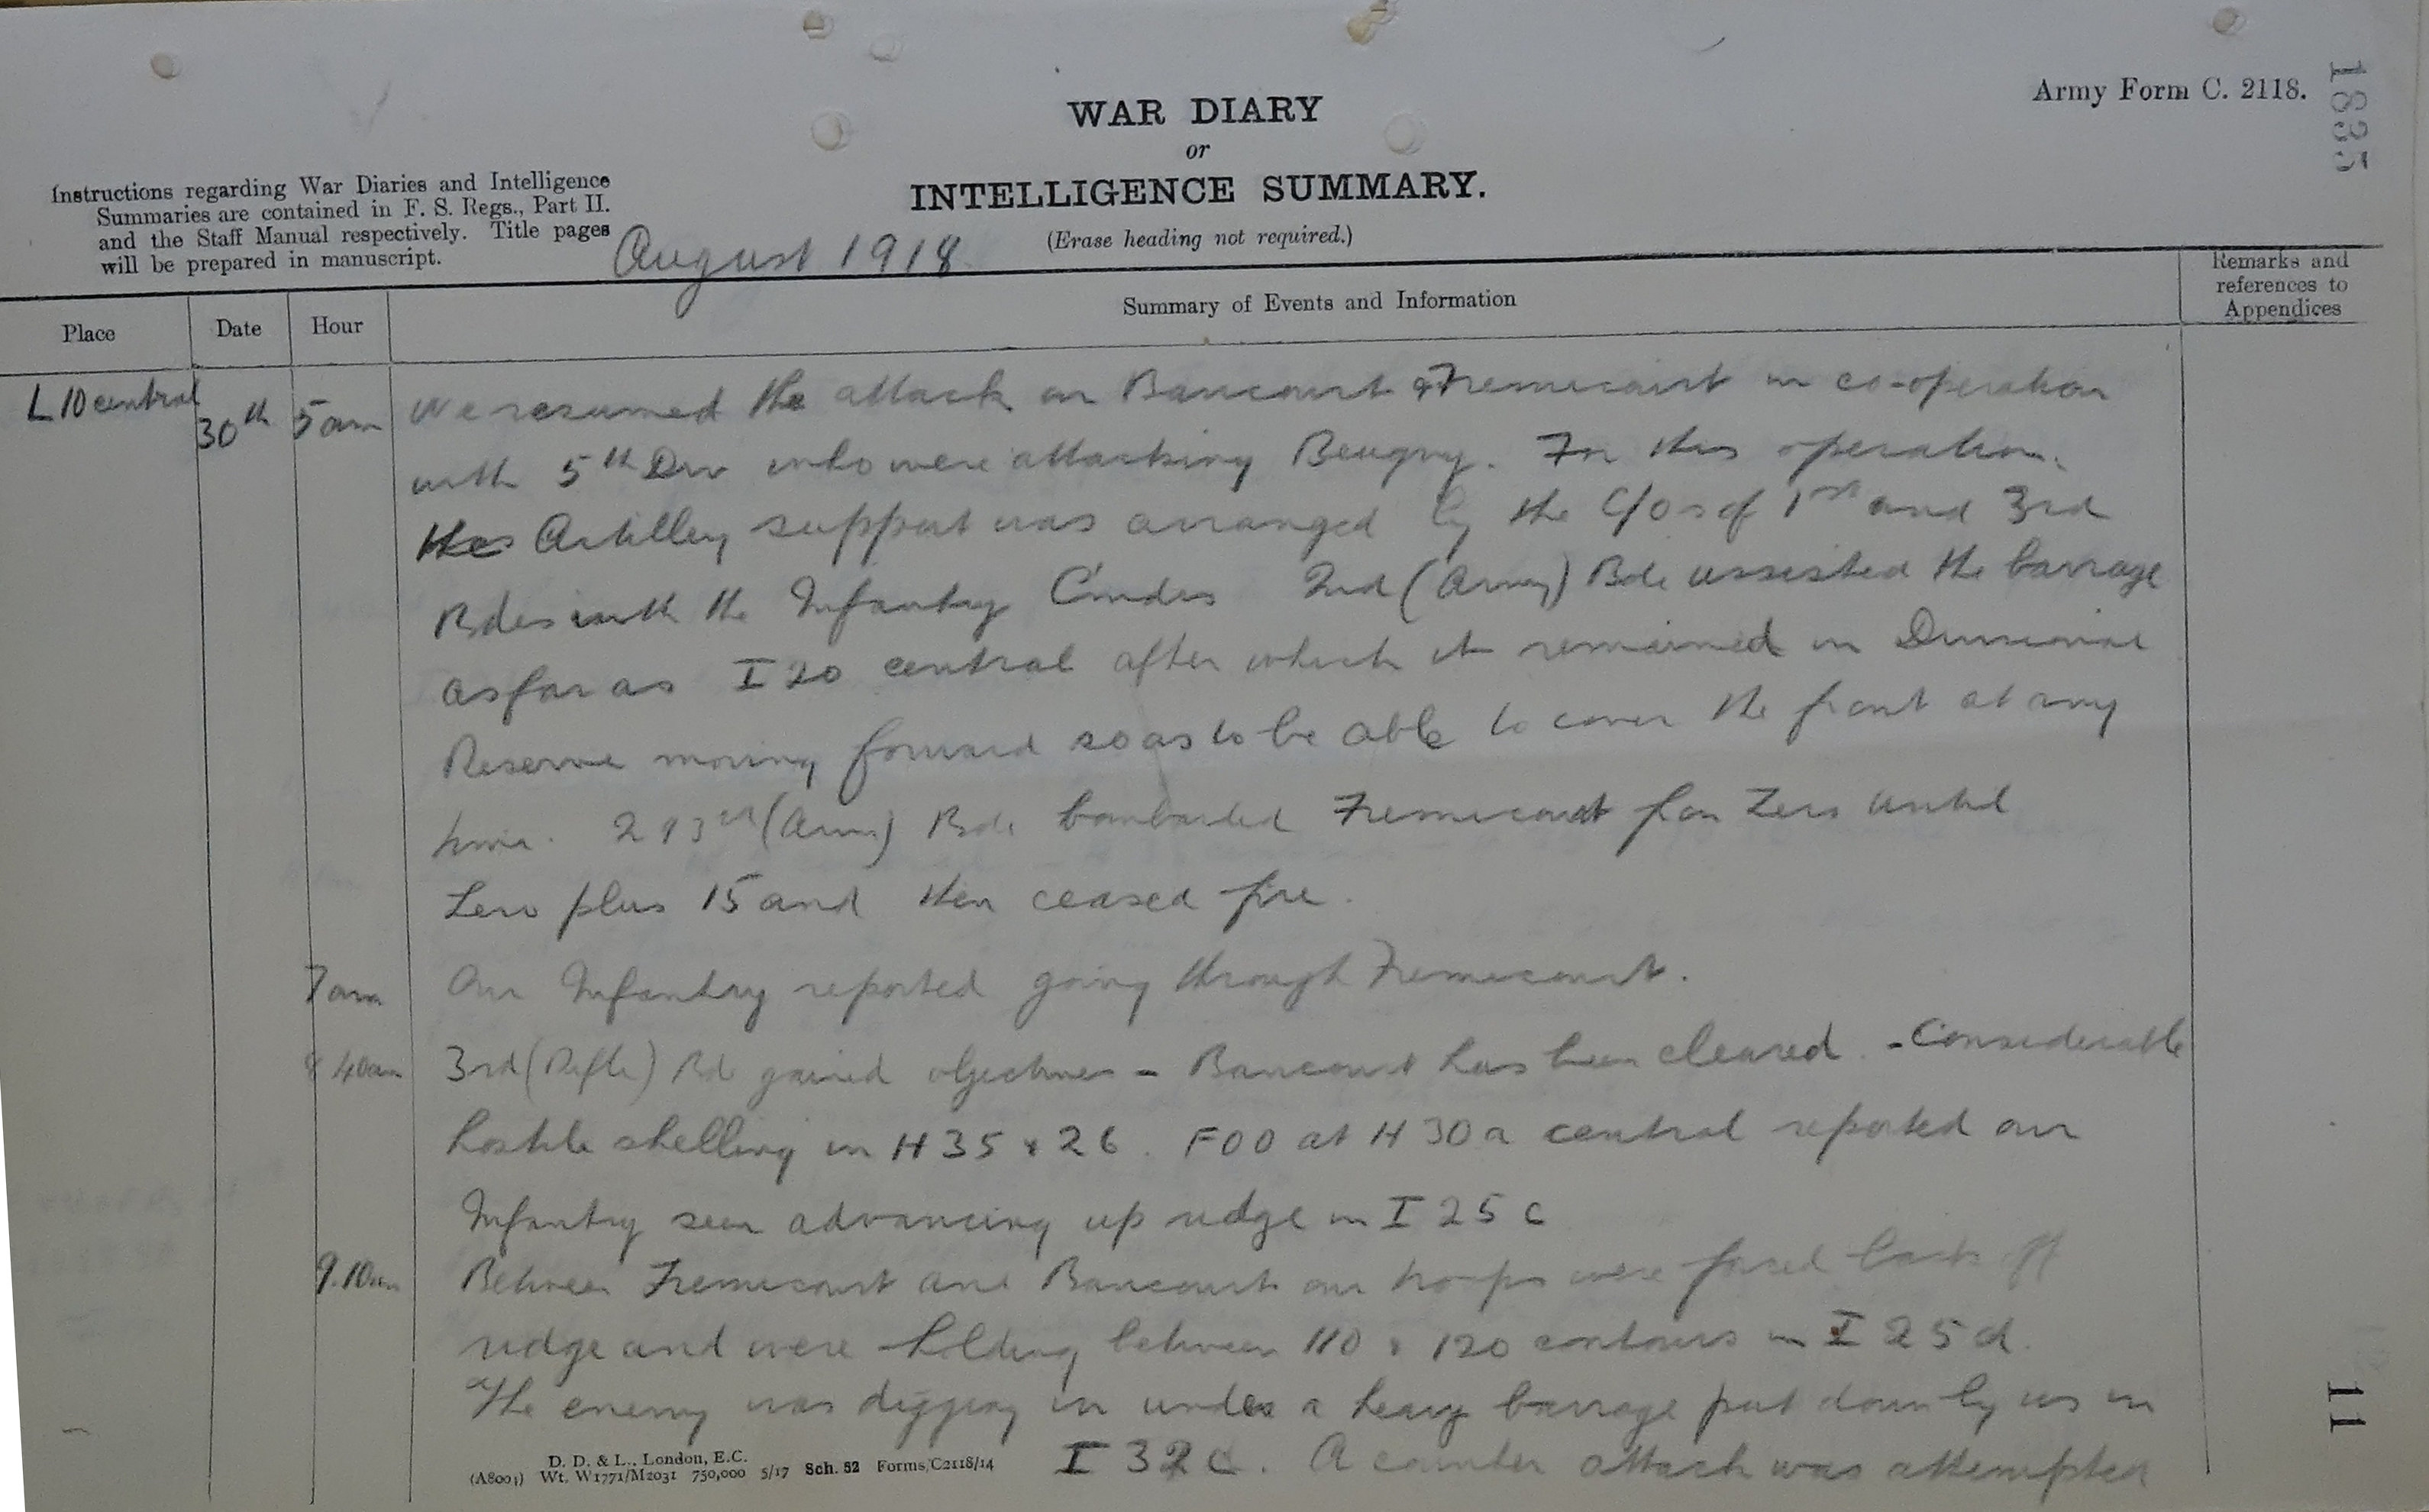 Army Form C. 2118.
1835
WAR DIARY
or
INTELLIGENCE SUMMARY.
(Erase heading not required.)
Instructions regarding War Diaries and Intelligence
Summaries are contained in F. S. Regs., Part II.
and the Staff Manual respectively. Title pages
will be prepared in manuscript.
August 1918
Place
Date
Hour
Summary of Events and Information
Remarks and
references to
Appendices
L 10 central 30th 5am We resumed the attack on Bancourt & Fremicourt in co-operation
with 5th Div who were attacking Beugny. In this operation
Artillery support was arranged by the C/Os of 1st and 3rd
Bdes with the Infantry Cmdrs 2nd (Army) Bde assisted the barrage
as far as I 20 central after which it remained in Divisional
Reserve moving forward so as to be able to cover the front at any
time. 293rd (Army) Bde bombarded Fremicourt from Zero until
Zero plus 15 and then ceased fire.
7am Our Infantry reported going through Fremicourt.
8.40am 3rd (Rifle) Bde gained objectives - Bancourt has been cleared. - Considerable
hostile shelling in H 35 & 26. FOO at H 30 a central reported our
Infantry seen advancing up ridge in I 25 c
9.10am Between Fremicourt and Bancourt our troops were forced back off
ridge and were holding between 110 & 120 contours in I 25 d.
The enemy was digging in under a heavy barrage put down by us in
I 32 c. A counter attack was attempted
D. D. & L., London, E.C.
(A8001) Wt. W1771/M2031 750,000 5/17 Sch. 52 Forms/C2118/14
11